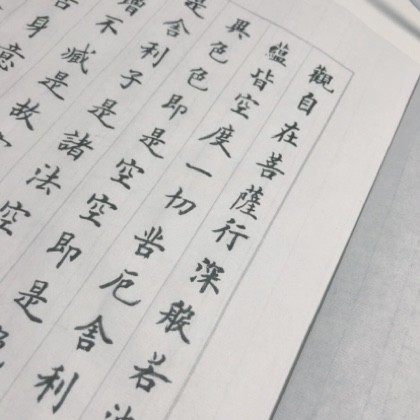 觀自在菩薩行深般若
蘊皆空度一切苦厄舍利
異色色即是空空即是色
是舍利子是諸法空
增不減是故
舌身意